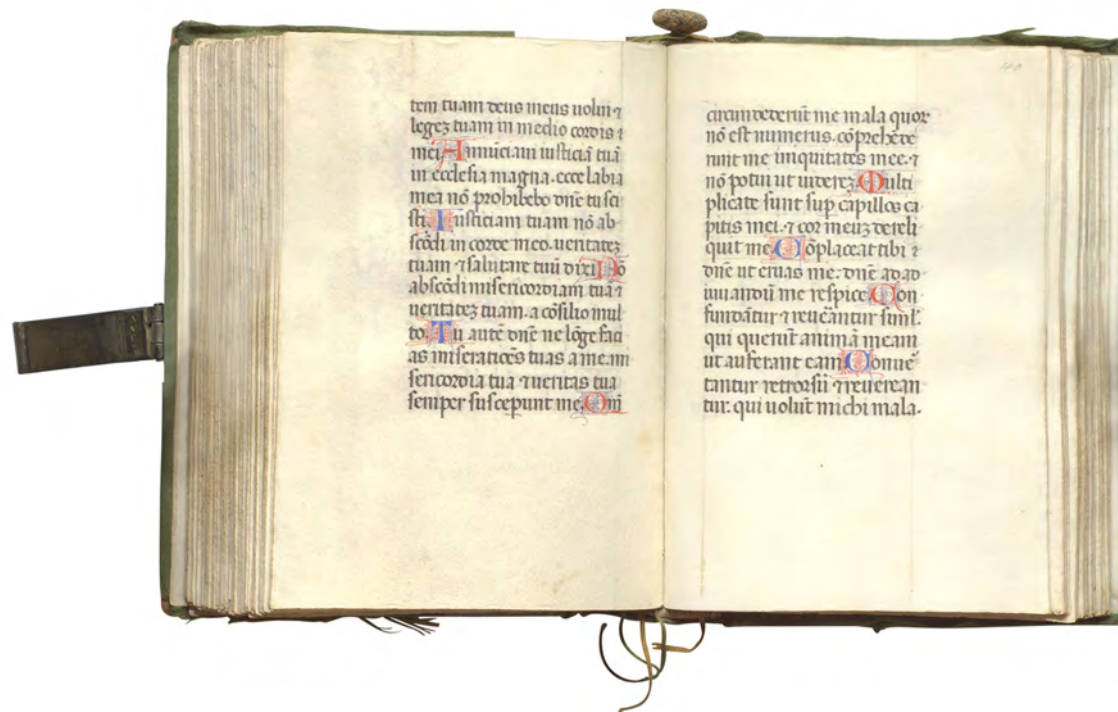 tem tuam deus meus uolui ⁊
legeʒ tuam in medio cordis ⁊
mei. Annūciaui iusticiā tuā
in ecclesia magna. ecce labia
mea nō prohibebo dn̄e tu sci
sti. Iusticiam tuam nō ab
scōdi in corde meo. ueritateʒ
tuam ⁊ salutare tuū dixi. Nō
abscōdi misericordiam tuā ⁊
ueritateʒ tuam. a cōsilio mul
to. Tu autē dn̄e ne lōge faci
as miseratiōes tuas a me. mi
sericordia tua ⁊ ueritas tua
semper susceperunt me. Qm̄
circumdederūt me mala quor
nō est numerus. cōprehēde
runt me iniquitates mee. ⁊
nō potui ut uidereʒ. Multi
plicate sunt sup capillos ca
pitis mei. ⁊ cor meuʒ dereli
quit me. Cōplaceat tibi ⁊
dn̄e ut eruas me. dn̄e ad ad
iuuandū me respice. Con
fundātur ⁊ reuēantur simł.
qui querūt animā meam
ut auferant eam. Conuē
tantur retrorsū ⁊ reuerean
tur. qui uolūt michi mala.